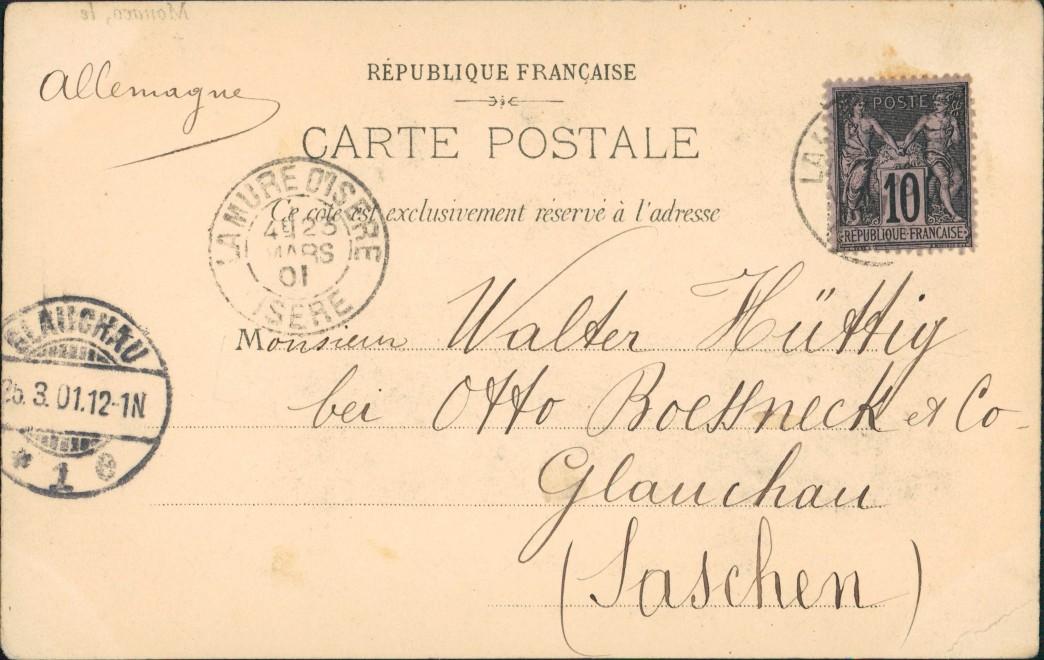 Monaco, le
Allemagne
RÉPUBLIQUE FRANÇAISE
CARTE POSTALE
Ce côté est exclusivement réservé à l'adresse
POSTE
10
RÉPUBLIQUE FRANÇAISE
LA
LA MURE D'ISÈRE
23
MARS
01
ISÈRE
Monsieur Walter Hüttig
bei Otto Boessneck et Co
Glauchau
(Saschen)
GLAUCHAU
25.3.01.12-1N
* 1 e